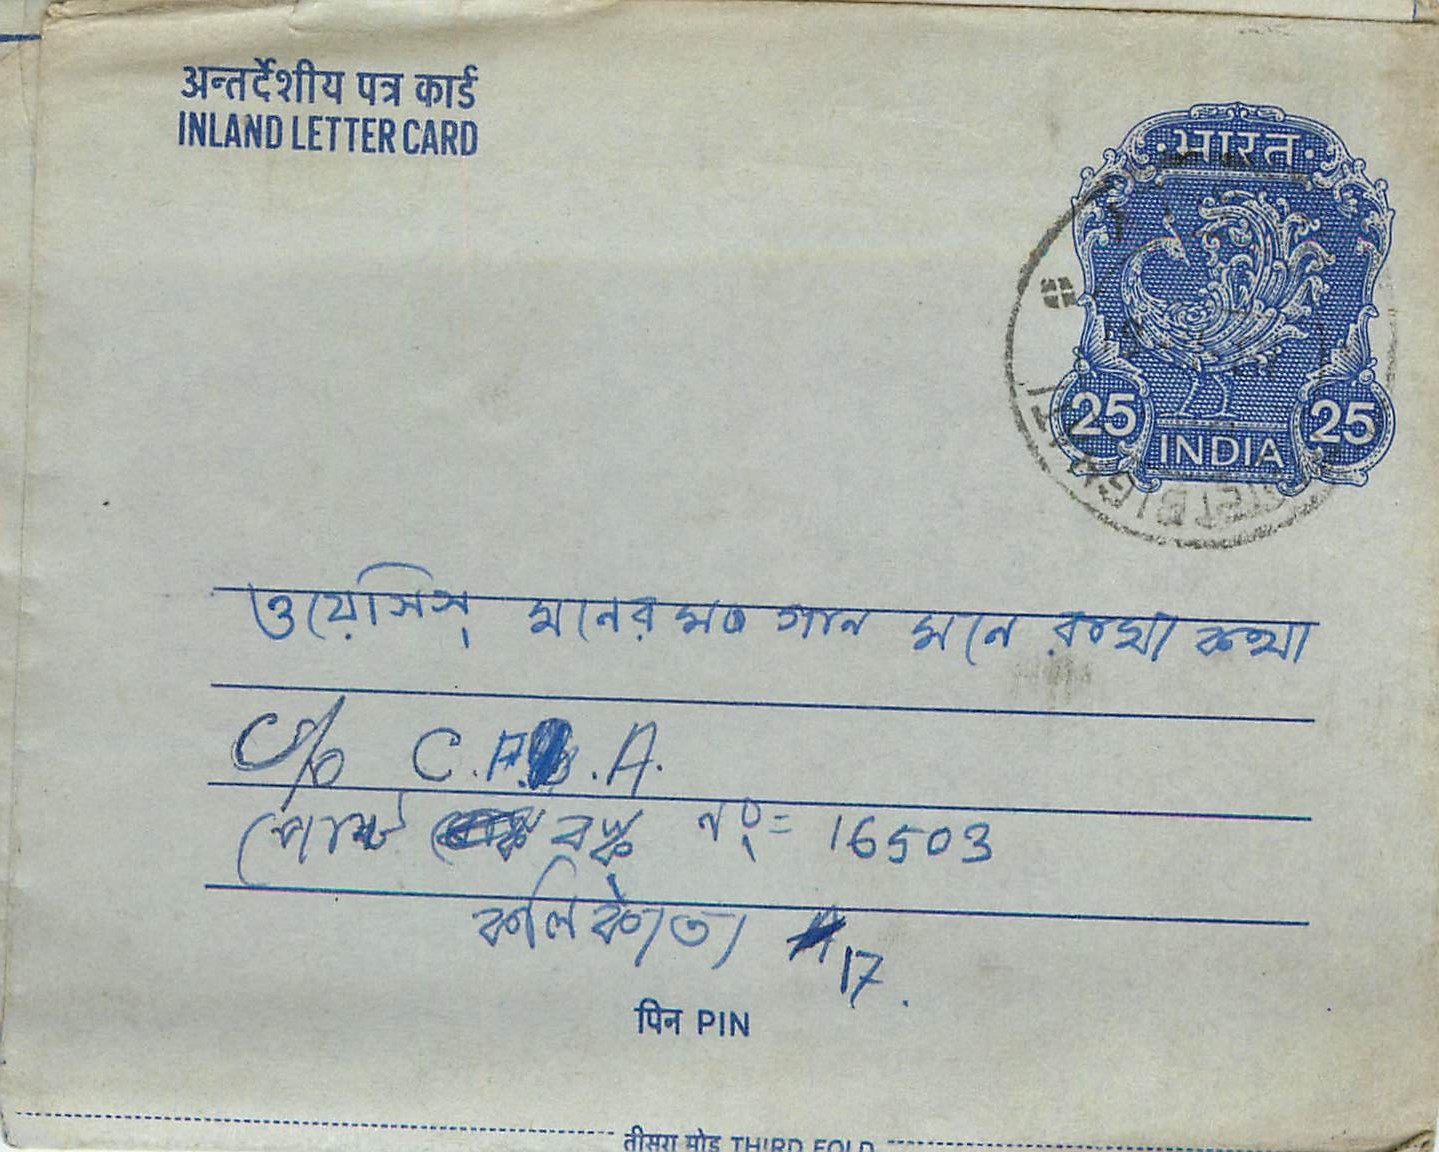 अन्तर्देशीय पत्र कार्ड
INLAND LETTER CARD
भारत
25 INDIA 25
ওয়েসিস্ মনের মত গান মনে রাখা কথা
C/o C.A.
পোস্ট বক্স নং = 16503
কলিকাতা 17.
पिन PIN
तीसरा मोड़ THIRD FOLD